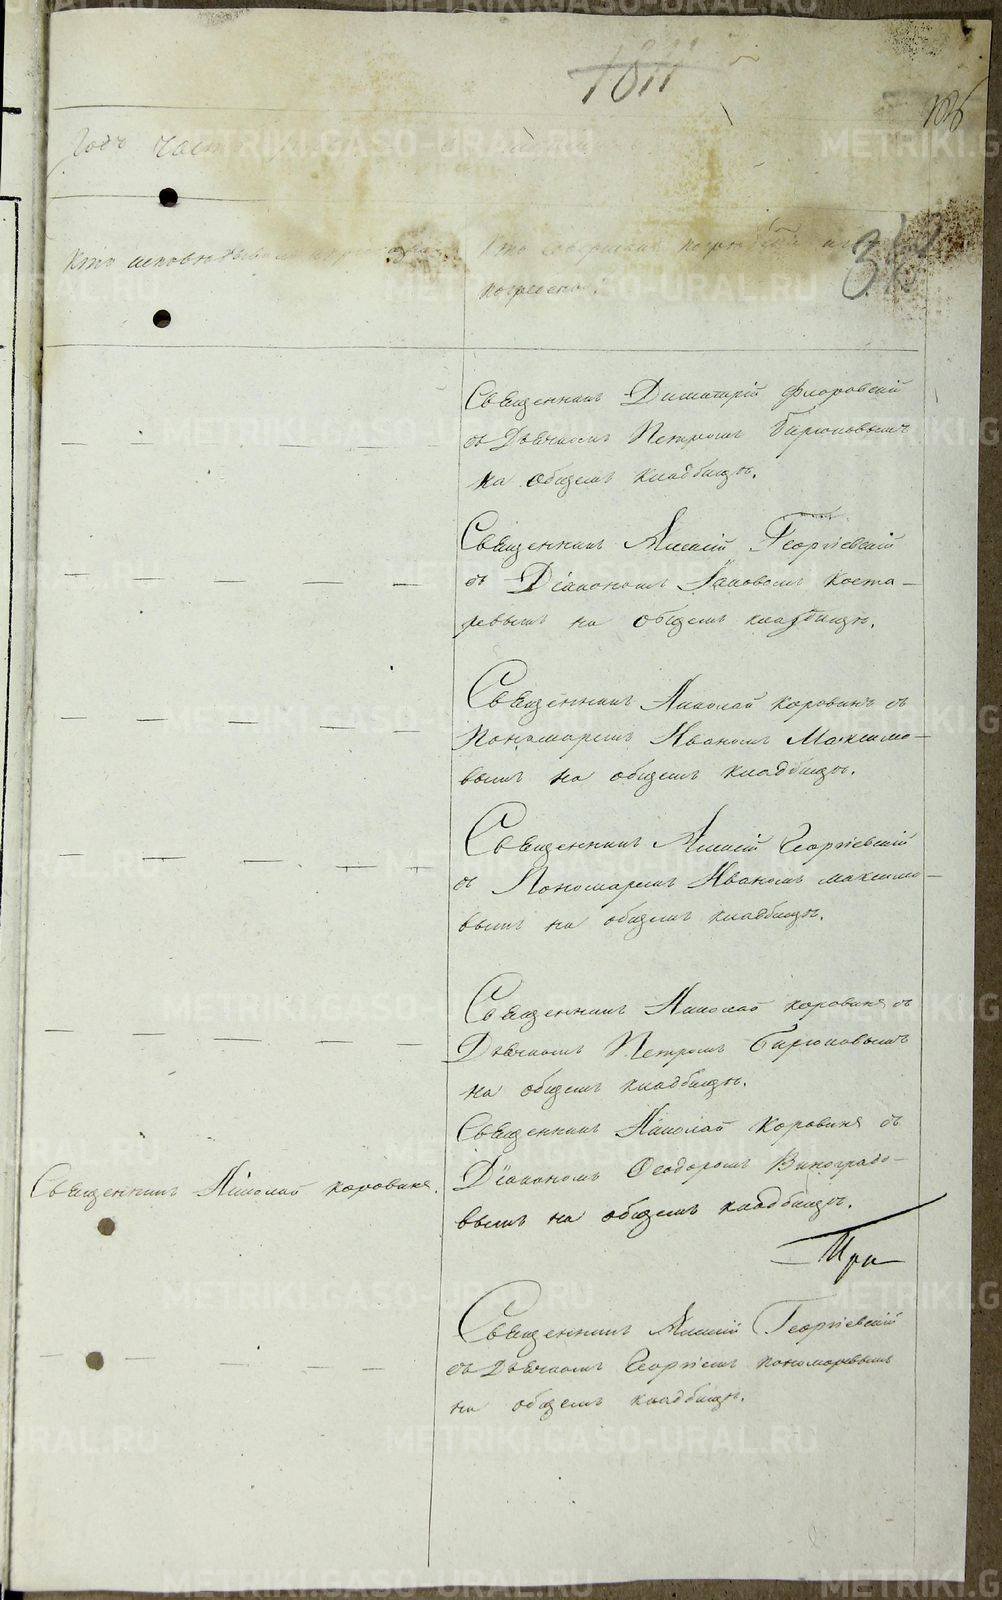 1811
186
Годъ часть
Кто исповѣдывалъ и
Кто совершалъ погребеніе и гдѣ
погребены.
Священникъ Димитрій Флоровскій
съ Дьячкомъ Петромъ Бирюковымъ
на общемъ кладбищѣ.
Священникъ Алексій Георгіевскій
съ Діакономъ Іаковомъ Коста-
ревымъ на общемъ кладбищѣ.
Священникъ Николай Коровинъ съ
Пономаремъ Иваномъ Максимо-
вымъ на общемъ кладбищѣ.
Священникъ Алексій Георгіевскій
съ Пономаремъ Иваномъ Максимо-
вымъ на общемъ кладбищѣ.
Священникъ Николай Коровинъ съ
Дьячкомъ Петромъ Бирюковымъ
на общемъ кладбищѣ.
Священникъ Николай Коровинъ.
Священникъ Николай Коровинъ съ
Діакономъ Феодоромъ Виноградо-
вымъ на общемъ кладбищѣ.
При
Священникъ Алексій Георгіевскій
съ Дьячкомъ Георгіемъ Пономаревымъ
на общемъ кладбищѣ.
METRIKI.GASO-URAL.RU